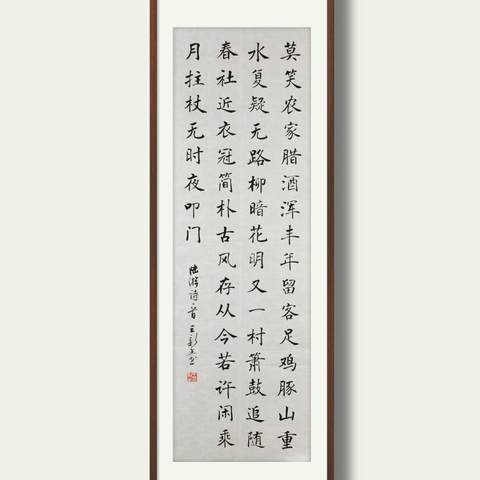 莫笑农家腊酒浑丰年留客足鸡豚山重
水复疑无路柳暗花明又一村箫鼓追随
春社近衣冠简朴古风存从今若许闲乘
月拄杖无时夜叩门
陆游诗一首 王